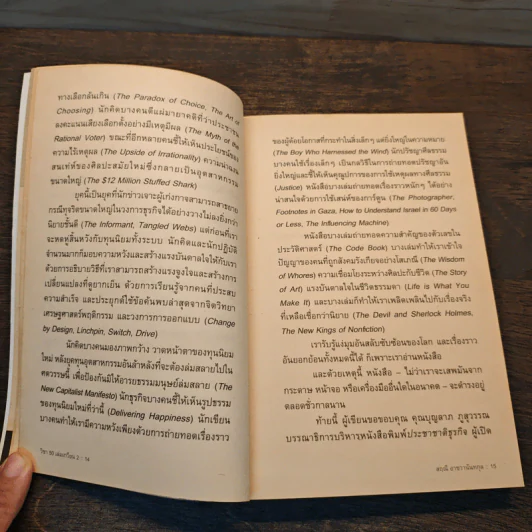 ทางเลือกล้นเกิน (The Paradox of Choice, The Art of
Choosing) นักคิดบางคนตีแผ่มายาคติที่ว่าประชาชน
ลงคะแนนเสียงเลือกตั้งอย่างมีเหตุมีผล (The Myth of the
Rational Voter) ขณะที่อีกหลายคนชี้ให้เห็นประโยชน์ของ
ความไร้เหตุผล (The Upside of Irrationality) ความน่าฉงน
สนเท่ห์ของศิลปะสมัยใหม่ซึ่งกลายเป็นอุตสาหกรรม
ขนาดใหญ่ (The $12 Million Stuffed Shark)
ยุคนี้เป็นยุคที่นักข่าวเจาะผู้เก่งกาจสามารถสาธยาย
กรณีทุจริตขนาดใหญ่ในวงการธุรกิจได้อย่างวางไม่ลงยิ่งกว่า
นิยายชั้นดี (The Informant, Tangled Webs) แต่ก่อนที่เรา
จะหดหู่สิ้นหวังกับทุนนิยมทั้งระบบ นักคิดและนักปฏิบัติ
จำนวนมากก็มอบความหวังและสร้างแรงบันดาลใจให้กับเรา
ด้วยการอธิบายวิธีที่เราสามารถสร้างแรงจูงใจและสร้างการ
เปลี่ยนแปลงที่ดูยากเย็น ด้วยการเรียนรู้จากคนที่ประสบ
ความสำเร็จ และประยุกต์ใช้ข้อค้นพบล่าสุดจากจิตวิทยา
เศรษฐศาสตร์พฤติกรรม และวงการการออกแบบ (Change
by Design, Linchpin, Switch, Drive)
นักคิดบางคนมองภาพกว้าง วาดหน้าตาของทุนนิยม
ใหม่ หลังยุคทุนอุตสาหกรรมอันล้าหลังที่จะต้องล่มสลายไปใน
ศตวรรษนี้ เพื่อป้องกันมิให้อารยธรรมมนุษย์ล่มสลาย (The
New Capitalist Manifesto) นักธุรกิจบางคนชี้ให้เห็นรูปธรรม
ของทุนนิยมใหม่ที่ว่านี้ (Delivering Happiness) นักเขียน
บางคนทำให้เรามีความหวังเพียงด้วยการถ่ายทอดเรื่องราว
วิชา 50 เล่มเกวียน 2 : 14
ของผู้ด้อยโอกาสที่กระทำในสิ่งเล็กๆ แต่ยิ่งใหญ่ในความหมาย
(The Boy Who Harnessed the Wind) นักปรัชญาศีลธรรม
บางคนใช้เรื่องเล็กๆ เป็นกลวิธีในการถ่ายทอดปรัชญาอัน
ยิ่งใหญ่และชี้ให้เห็นคุณูปการของการใช้เหตุผลทางศีลธรรม
(Justice) หนังสือบางเล่มถ่ายทอดเรื่องราวหนักๆ ได้อย่าง
น่าสนใจด้วยการใช้เสน่ห์ของการ์ตูน (The Photographer,
Footnotes in Gaza, How to Understand Israel in 60 Days
or Less, The Influencing Machine)
หนังสือบางเล่มถ่ายทอดความสำคัญของตัวเลขใน
ประวัติศาสตร์ (The Code Book) บางเล่มทำให้เราเข้าใจ
ปัญญาของคนที่ถูกสังคมรังเกียจอย่างโสเภณี (The Wisdom
of Whores) ความเชื่อมโยงระหว่างศิลปะกับชีวิต (The Story
of Art) แรงบันดาลใจในชีวิตธรรมดา (Life is What You
Make It) และบางเล่มก็ทำให้เราเพลิดเพลินไปกับเรื่องจริง
ที่เหลือเชื่อกว่านิยาย (The Devil and Sherlock Holmes,
The New Kings of Nonfiction)
เรารับรู้แง่มุมอันสลับซับซ้อนของโลก และเรื่องราว
อันยอกย้อนทั้งหมดนี้ได้ ก็เพราะเราอ่านหนังสือ
และด้วยเหตุนี้ หนังสือ – ไม่ว่าเราจะเสพมันจาก
กระดาษ หน้าจอ หรือเครื่องมืออื่นใดในอนาคต – จะดำรงอยู่
ตลอดชั่วกาลนาน
ท้ายนี้ ผู้เขียนขอขอบคุณ คุณบุญลาภ ภูสุวรรณ
บรรณาธิการบริหารหนังสือพิมพ์ประชาชาติธุรกิจ ผู้เปิด
สฤณี อาชวานันทกุล : 15